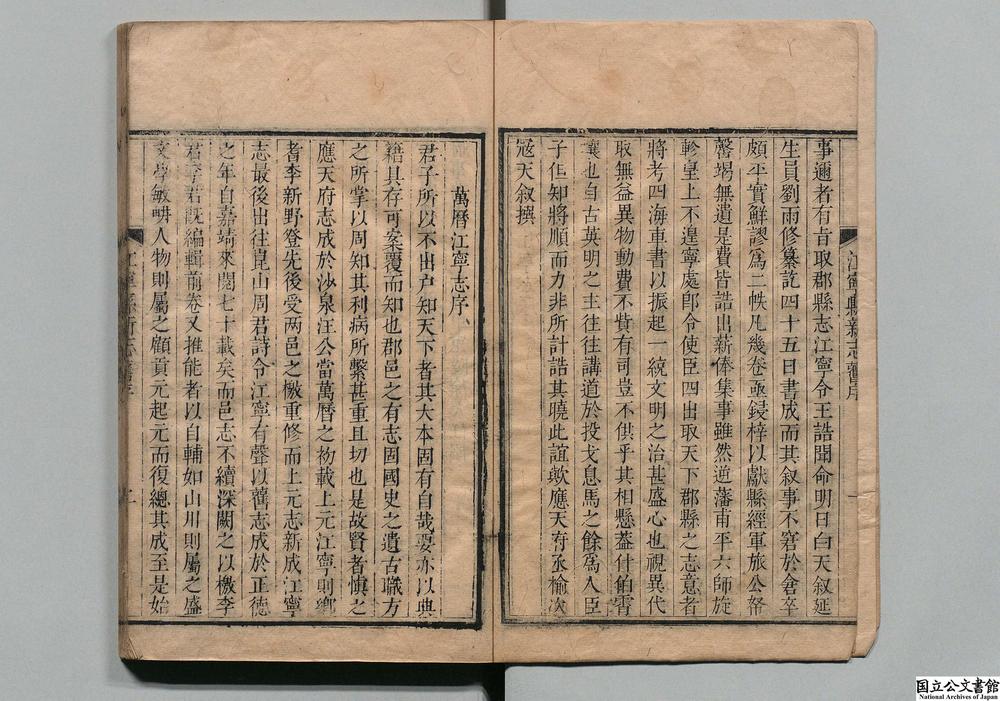 事邇者有旨取郡縣志江寧令王誥聞命明日白天叙延
生員劉雨修纂訖四十五日書成而其叙事不窘於倉卒
頗平實鮮謬爲二帙凡幾卷亟鋟梓以獻縣經軍旅公帑
罄竭無遺是費皆誥出薪俸集事雖然逆藩甫平六師旋
軫皇上不遑寧處卽令使臣四出取天下郡縣之志意者
將考四海車書以振起一統文明之治甚盛心也視異代
取無益異物動費不貲有司豈不供乎其相懸葢什伯霄
壤也自古英明之主往往講道於投戈息馬之餘爲人臣
子但知將順而力非所計誥其曉此誼歟應天府丞榆次
寇天叙撰
江寧縣新志舊序
一
萬曆江寧志序
君子所以不出户知天下者其大本固有自哉要亦以典
籍具存可案覆而知也郡邑之有志固國史之遺古職方
之所掌以周知其利病所繫甚重且切也是故賢者慎之
應天府志成於沙泉汪公當萬曆之初載上元江寧則鄉
者李新野登先後受两邑之檄重修而上元志新成江寧
志最後出往崑山周君詩令江寧有聲以舊志成於正德
之年自嘉靖來閱七十載矣而邑志不續深闕之以檄李
君李君既編輯前卷又推能者以自輔如山川則屬之盛
文學敏畊人物則屬之顧貢元起元而復總其成至是始
江寧縣新志舊序
二
國立公文書館
National Archives of Japan